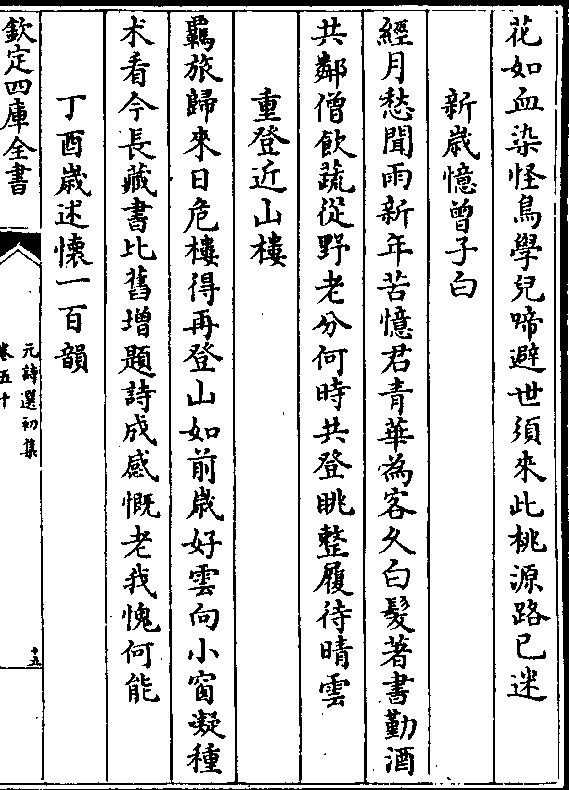 花如血染怪鳥學兒啼避世須來此桃源路已迷
新歳憶曾子白
經月愁聞雨新年苦憶君青華為客久白髪著書勤酒
共鄰僧飲蔬從野老分何時共登眺整履待晴雲
重登近山樓
羈旅歸來日危樓得再登山如前歳好雲向小窗凝種
术看今長藏書比舊増題詩成感慨老我愧何能
丁酉歳述懷一百韻
欽定四庫全書
元詩選初集
卷五十
十五